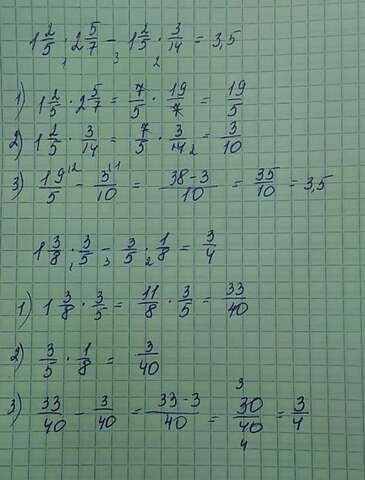 1 2/5 · 2 5/7 − 1 2/5 · 3/14 = 3,5
1 3 2
1) 1 2/5 · 2 5/7 = 7/5 · 19/7 = 19/5
2) 1 2/5 · 3/14 = 7/5 · 3/14 2 = 3/10
3) 19\2/5 − 3\1/10 = 38-3/10 = 35/10 = 3,5
1 3/8 · 3/5 − 3/5 · 1/8 = 3/4
1 3 2
1) 1 3/8 · 3/5 = 11/8 · 3/5 = 33/40
2) 3/5 · 1/8 = 3/40
3
3) 33/40 − 3/40 = 33-3/40 = 30/40 = 3/4
4